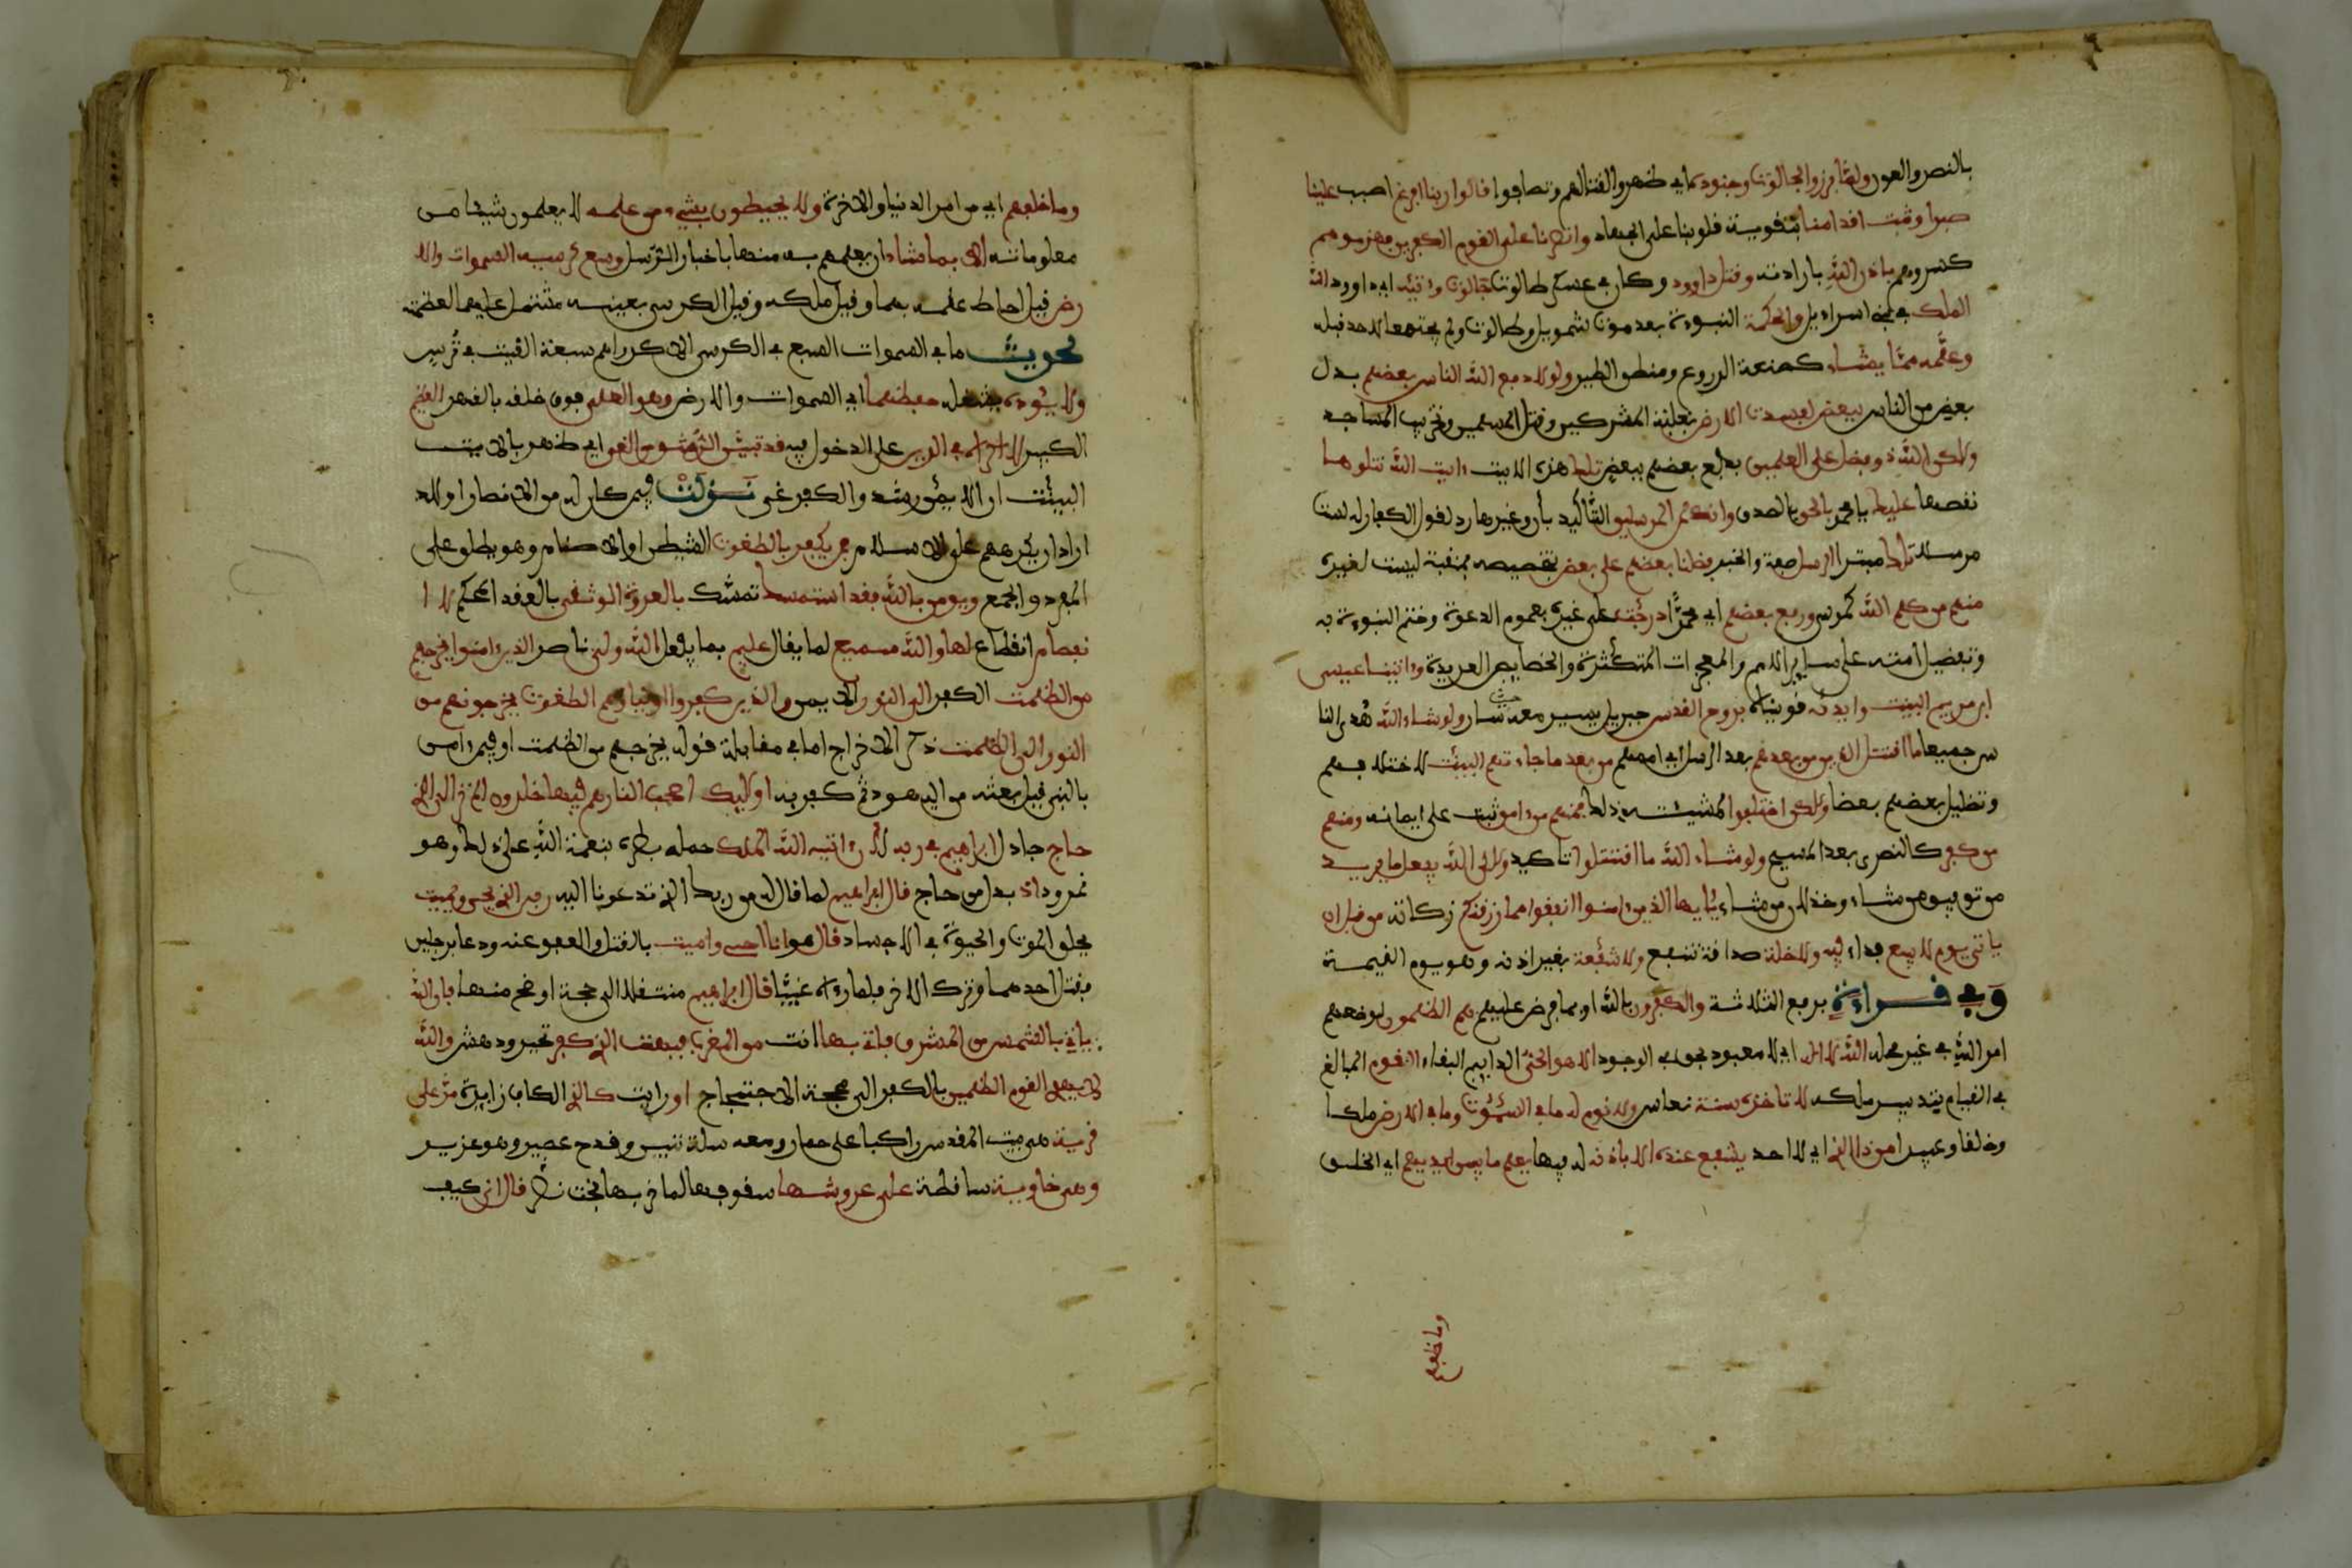 بالنصر والعون ولما برزوا لجالوت وجنوده اي ظهروا لقتالهم وتصافوا قالوا ربنا افرغ اصبب علينا
صبرا وثبت اقدامنا بتقوية قلوبنا على الجهاد وانصرنا على القوم الكفرين فهزموهم
كسروهم باذن الله بارادته وقتل داوود وكان في عسكر طالوت جالوت وءاتيه اي داوود الله
الملك في بني اسراءيل والحكمة النبوءة بعد موت شمويل وطالوت ولم يجتمعا لاحد قبله
وعلمه مما يشاء كصنعة الدروع ومنطق الطير ولولا دفع الله الناس بعضهم بدل
بعض من الناس ببعض لفسدت الارض بغلبة المشركين وقتل المسلمين وتخريب المساجد
ولكن الله ذو فضل على العلمين بدفع بعضهم ببعض تلك هذه الايت ءايت الله نتلوها
نقصها عليك يا محمد بالحق بالصدق وانك لمن المرسلين التأكيد بأن وغيرها رد لقول الكفار له لست
مرسلا تلك مبتدا الرسل صفة والخبر فضلنا بعضهم على بعض بتخصيصه بمنقبة ليست لغيره
منهم من كلم الله كموسى ورفع بعضهم اي محمدا درجت على غيره بعموم الدعوة وختم النبوءة به
وتفضيل امته على ساير الامم والمعجزات المتكثرة والخصايص العديدة وءاتينا عيسى
ابن مريم البينت وايدنه قويناه بروح القدس جبريل يسير معه حيث سار ولو شاء الله هدى النا
س جميعا ما اقتتل الذين من بعدهم بعد الرسل اي اممهم من بعد ما جاءتهم البينت لاختلافهم
وتضليل بعضهم بعضا ولكن اختلفوا لمشيئته ذلك فمنهم من ءامن ثبت على ايمانه ومنهم
من كفر كالنصرى بعد المسيح ولو شاء الله ما اقتتلوا تاكيد ولكن الله يفعل ما يريد
من توفيق من شاء وخذلان من شاء يأيها الذين ءامنوا انفقوا مما رزقنكم زكاته من قبل ان
ياتي يوم لا بيع فداء فيه ولا خلة صداقة تنفع ولا شفعة بغير اذنه وهو يوم القيمة
وفي قراءة برفع الثلاثة والكفرون بالله او بما فرض عليهم هم الظلمون لوضعهم
امر الله في غير محله الله لا اله اي لا معبود بحق في الوجود الا هو الحي الدايم البقاء القيوم المبالغ
في القيام بتدبير ملكه لا تاخذه سنة نعاس ولا نوم له ما في السموت وما في الارض ملكا
وخلقا وعبيدا من ذا الذي اي لا احد يشفع عنده الا باذنه له فيها يعلم ما بين ايديهم اي الخلق
وما خلفهم
وما خلفهم اي من امر الدنيا والاخرة ولا يحيطون بشيء من علمه لا يعلمون شيئا من
معلوماته الا بما شاء ان يعلمهم به منها باخبار الرسل وسع كرسيه السموات والا
رض قيل احاط علمه بهما وقيل ملكه وقيل الكرسي بعينه مشتمل عليهما لعظمته
لحديث ما في السموات السبع في الكرسي الا كدراهم سبعة القيت في ترس
ولا يئوده يثقله حفظهما اي السموات والارض وهو العلي فوق خلقه بالقهر العظيم
الكبير لا اكراه في الدين على الدخول فيه قد تبين الرشد من الغي اي ظهر بالايت
البينت ان الايمن رشد والكفر غي نزلت فيمن كان له من الانصار اولاد
اراد ان يكرههم على الاسلام فمن يكفر بالطغوت الشيطن او الاصنام وهو يطلق على
المفرد والجمع ويومن بالله فقد استمسك تمسك بالعروة الوثقى بالعقد المحكم لا ا
نفصام انقطاع لها والله سميع لما يقال عليم بما يفعل الله ولي ناصر الذين ءامنوا يخرجهم
من الظلمت الكفر الى النور الايمن والذين كفروا اولياؤهم الطغوت يخرجونهم من
النور الى الظلمت ذكر الاخراج اما في مقابلة قوله يخرجهم من الظلمت او فيمن ءامن
بالنبي قبل بعثته من اليهود ثم كفر به اوليك اصحب النار هم فيها خلدون الم تر الى الذي
حاج جادل ابراهيم في ربه لان ءاتيه الله الملك حمله بطره بنعمة الله على ذلك وهو
نمرود اذ بدل من حاج قال ابراهيم لما قال له من ربك الذي تدعونا اليه ربي الذي يحي ويميت
يخلق الموت والحيوة في الاجساد قال هو انا احي واميت بالقتل والعفو عنه ودعا برجلين
فقتل احدهما وترك الاخر فلما رءاه غبيا قال ابراهيم منتقلا الى حجة اوضح منها فان الله
ياتي بالشمس من المشرق فات بها انت من المغرب فبهت الذي كفر تحير ودهش والله
لا يهدي القوم الظلمين بالكفر الى محجة الاحتجاج او رايت كالذي الكاف زايدة مر على
قرية هي بيت المقدس راكبا على حمار ومعه سلة تين وقدح عصير وهو عزير
وهي خاوية ساقطة على عروشها سقوفها لما خربها بخت نصر قال انى كيف